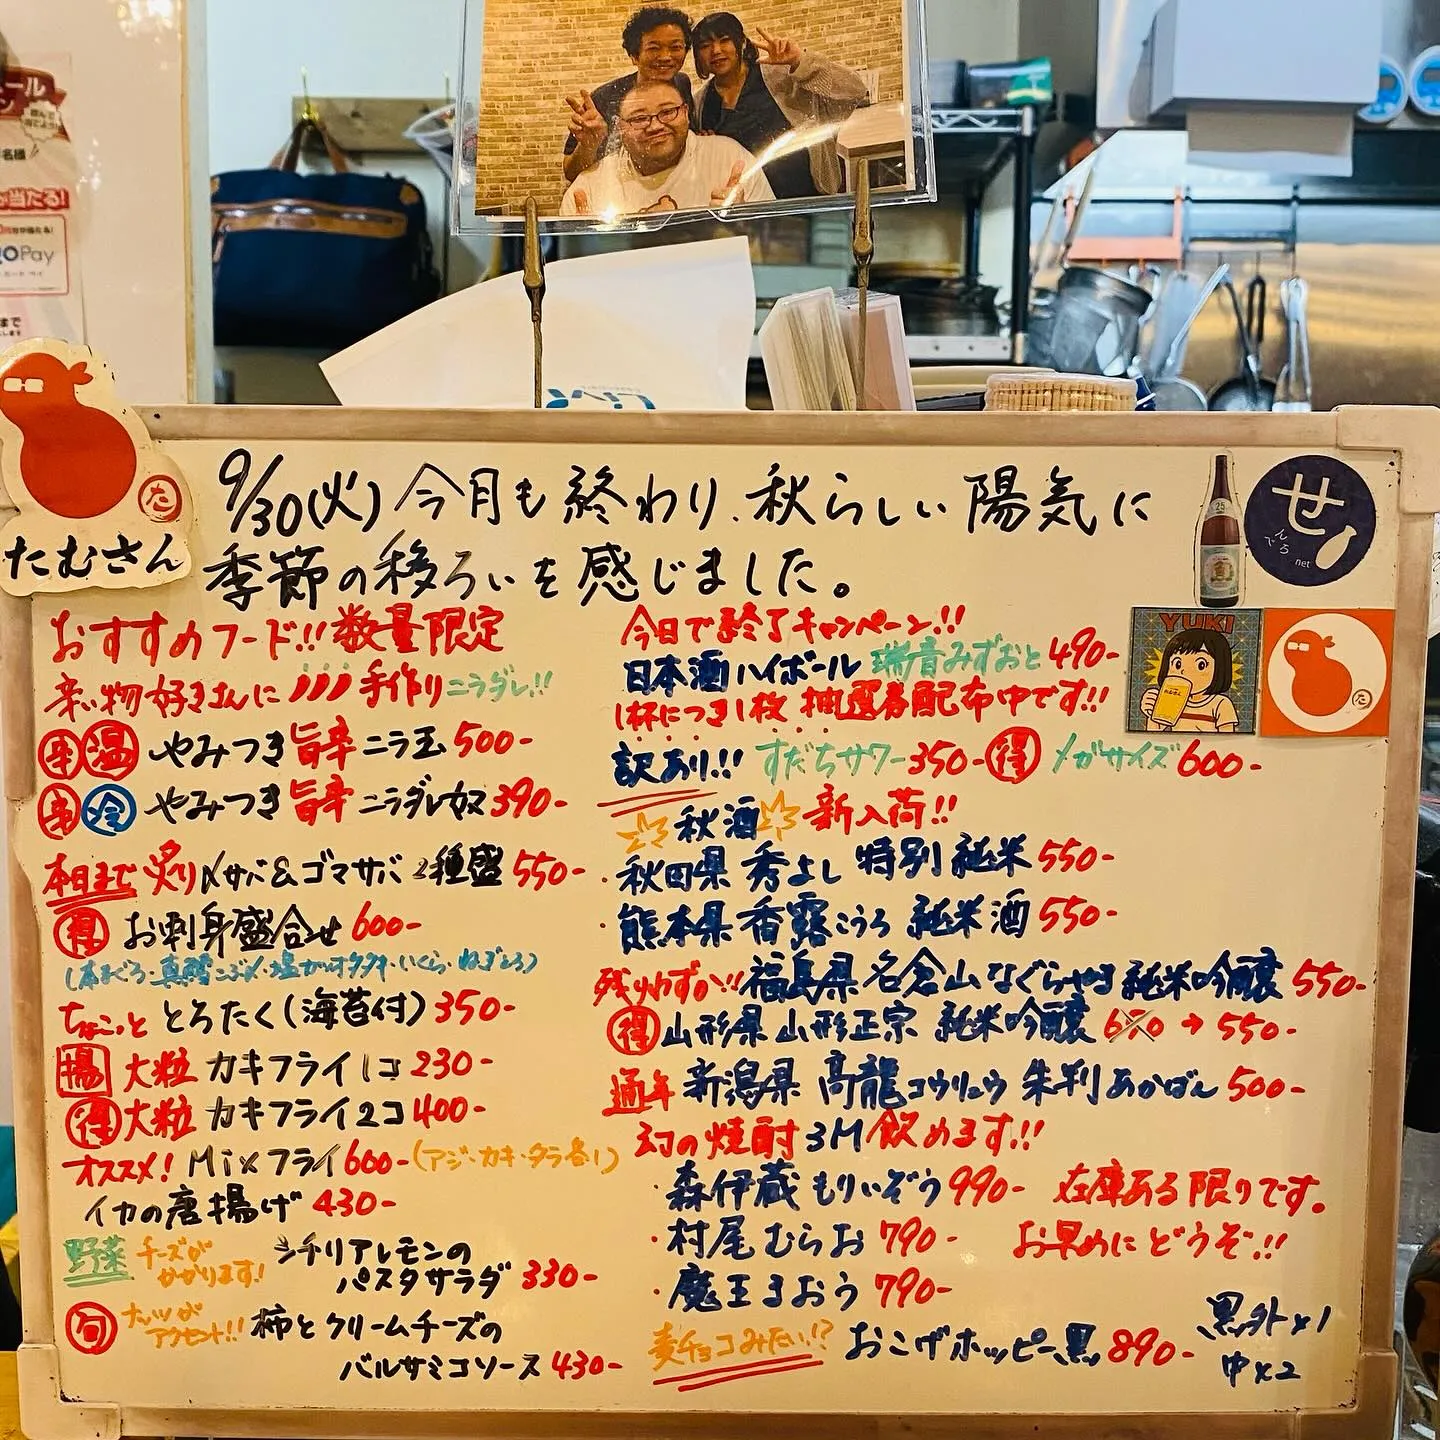 Pay
たむさん
た
9/30(火)今月も終わり、秋らしい陽気に
季節の移ろいを感じました。
せ
net
YUKI
た
おすすめフード!!数量限定
辛い物好きさんに 手作りニラダレ!!
辛 温 やみつき旨辛ニラ玉 500-
辛 冷 やみつき旨辛ニラダレ奴 390-
本日まで 炙り〆サバ&ゴマサバ 2種盛 550-
得 お刺身盛合せ 600-
(本まぐろ・真鯛こぶ〆・塩カツオタタキ・いくら・ねぎとろ)
ちょこっと とろたく(海苔付) 350-
揚 大粒 カキフライ1コ 230-
得 大粒 カキフライ2コ 400-
オススメ! Mixフライ 600-(アジ・カキ・タラ各1)
イカの唐揚げ 430-
野菜 チーズがかかります! シチリアレモンの
パスタサラダ 330-
旬 ナッツがアクセント!! 柿とクリームチーズの
バルサミコソース 430-
今日で終了キャンペーン!!
日本酒ハイボール 瑞音みずおと 490-
1杯につき1枚 抽選券配布中です!!
訳あり!! すだちサワー 350- 得 メガサイズ 600-
秋酒 新入荷!!
・秋田県 秀よし 特別純米 550-
・熊本県 香露こうろ 純米酒 550-
残りわずか!! 福島県 名倉山なぐらやま 純米吟醸 550-
得 山形県 山形正宗 純米吟醸 650→550-
通年 新潟県 高龍コウリュウ 朱判あかばん 500-
幻の焼酎3M飲めます!!
・森伊蔵もりいぞう 990- 在庫ある限りです。
・村尾むらお 790- お早めにどうぞ!!
・魔王まおう 790-
麦チョコみたい!? おこげホッピー黒 890- 黒外×1
中×2